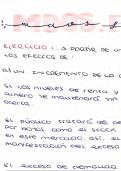 EJERCICIO 1: A PARTIR DE UN
LOS EFECTOS DE:
A) UN INCREMENTO DE LA
SI LOS NIVELES DE RENTA Y
DINERO SE MANTENDRÁ
EL PÚBLICO TRATARÁ DE
POR BONOS, COMO EL STOCK
EN ESTE MERCADO, ASÍ, EL
MANIFESTACIÓN DEL EXCESO
EL EXCESO DE DEMANDA